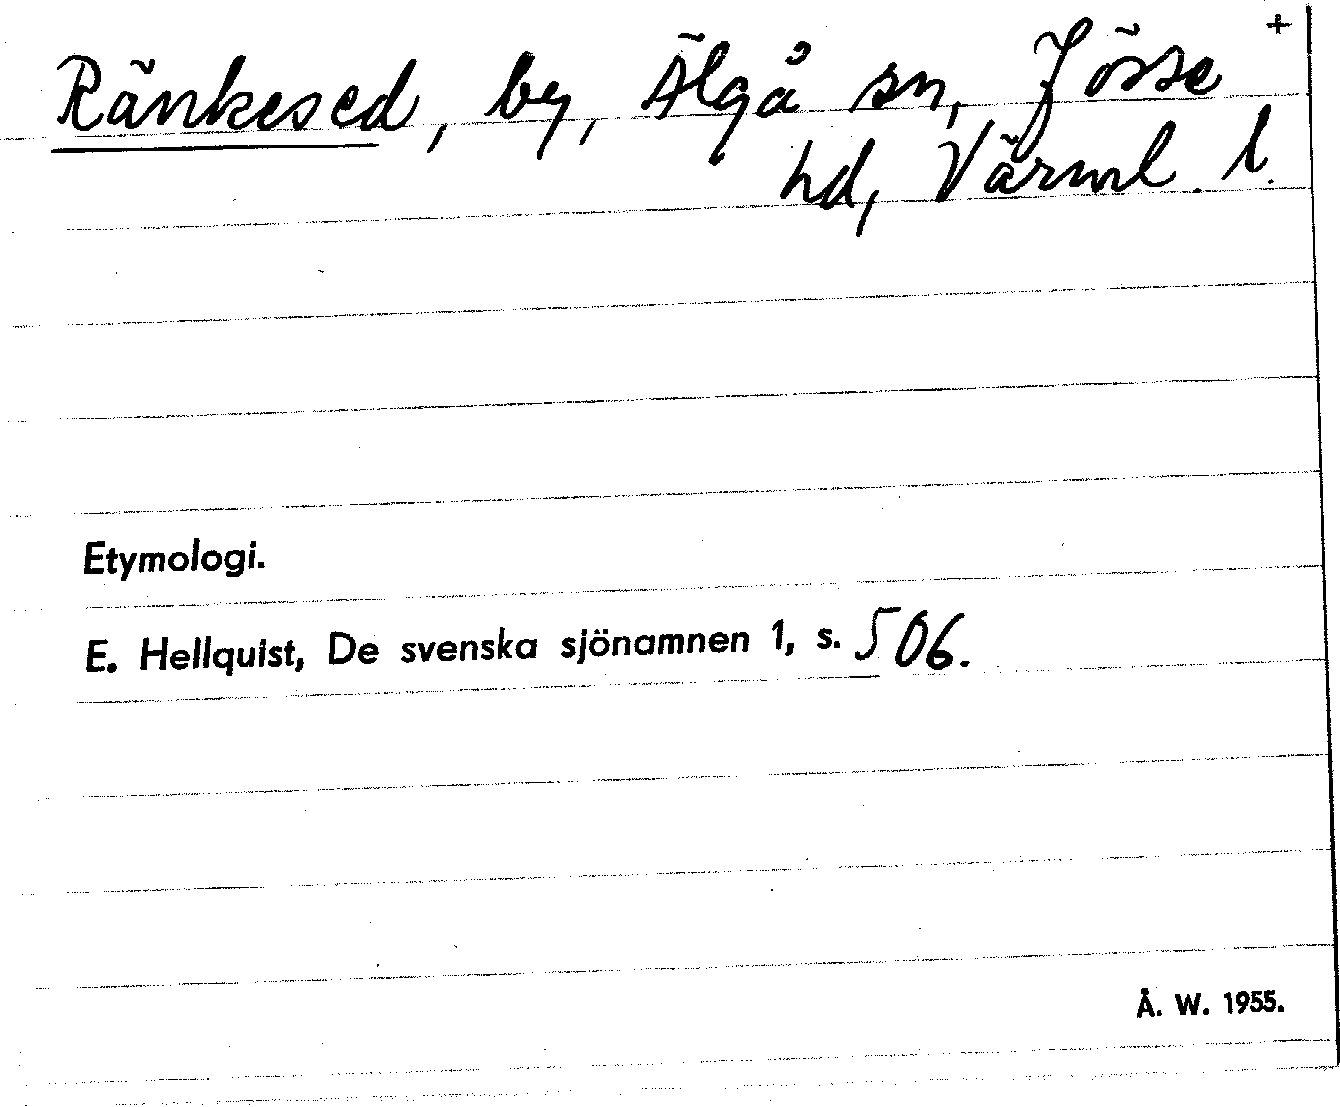 +
Ränkesed, by, Älgå sn, Jösse
hd, Värml. l.
Etymologi.
E. Hellquist, De svenska sjönamnen 1, s. 506.
Å. W. 1955.